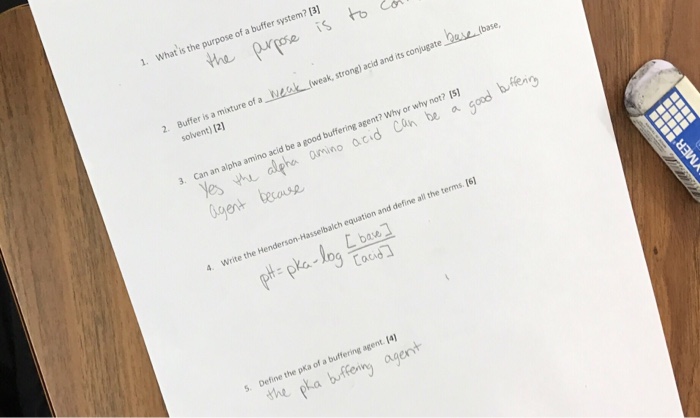 1. What is the purpose of a buffer system? [3]
the purpose is to
2. Buffer is a mixture of a weak (weak, strong) acid and its conjugate base (base,
solvent) [2]
3. Can an alpha amino acid be a good buffering agent? Why or why not? [5]
Yes the alpha amino acid can be a good buffering
agent because
4. Write the Henderson-Hasselbalch equation and define all the terms. [6]
pH = pka - log [base]
[acid]
5. Define the pKa of a buffering agent. [4]
the pka buffering agent
YMER